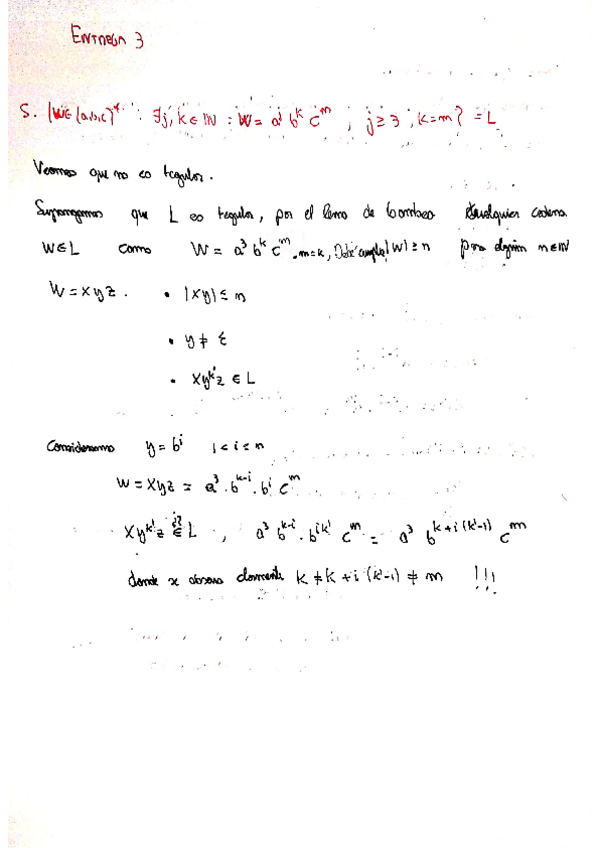 ENTREGA 3
5. {W∈{a,b,c}* : ∃j,k∈ℕ : W = a^j b^k c^m , j≥3 , k=m} = L
Veamos que no es regular.
Supongamos que L es regular, por el lema de bombeo cualquier cadena
W∈L como W = a³ b^k c^m, m=k, Debe cumplir |W| ≥ n para algún n∈ℕ
W = xyz. • |xy| ≤ n
• y ≠ ε
• xy^k'z ∈ L
Consideramos y = b^i 1 < i ≤ n
W = xyz = a³ · b^k-i · b^i c^m
xy^k'z ¿∈? L , a³ b^k-i · b^ik' c^m = a³ b^k+i(k'-1) c^m
donde se observa claramente k ≠ k + i(k'-1) ≠ m !!!